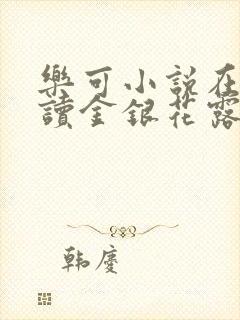 樂可小説在
讀金銀花露
韩慶